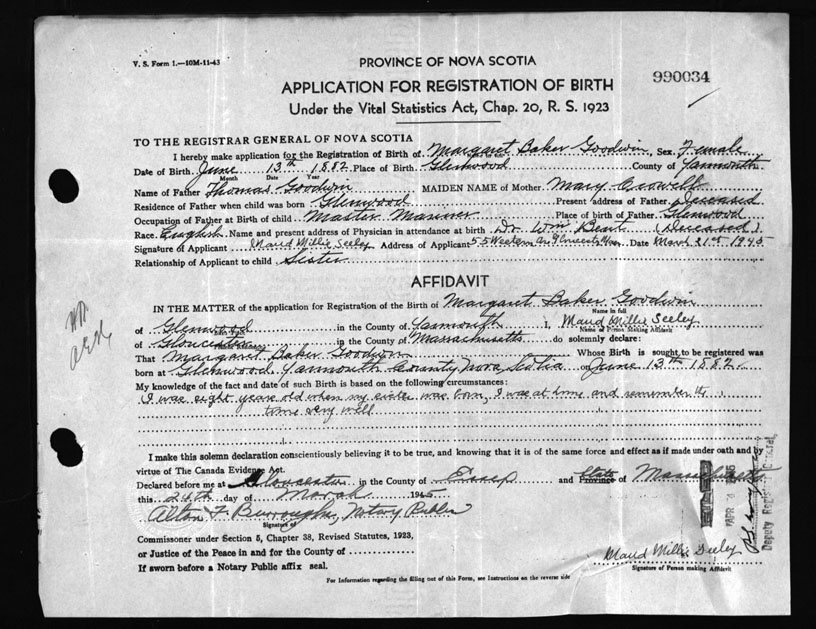 V. S. Form 1.—10M-11-43
PROVINCE OF NOVA SCOTIA
990034
APPLICATION FOR REGISTRATION OF BIRTH
Under the Vital Statistics Act, Chap. 20, R. S. 1923
TO THE REGISTRAR GENERAL OF NOVA SCOTIA
I hereby make application for the Registration of Birth of Margaret Baker Goodwin, Sex Female
Date of Birth June 13th 1882 Place of Birth Glenwood County of Yarmouth
Month Date Year
Name of Father Thomas Goodwin MAIDEN NAME of Mother Mary Crowell
Residence of Father when child was born Glenwood Present address of Father Deceased
Occupation of Father at Birth of child Master Mariner Place of birth of Father Glenwood
Race English Name and present address of Physician in attendance at birth Dr. Wm Bent (Deceased)
Signature of Applicant Maud Millie Seeley Address of Applicant 55 Western Ave Date March 21st 1945
Relationship of Applicant to child Sister
AFFIDAVIT
IN THE MATTER of the application for Registration of the Birth of Margaret Baker Goodwin
Name in full
of Glenwood in the County of Yarmouth I, Maud Millie Seeley
Name of Person Making Affidavit
of Gloucester in the County of Massachusetts do solemnly declare:
That Margaret Baker Goodwin Whose Birth is sought to be registered was
born at Glenwood Yarmouth County Nova Scotia on June 13th 1882
My knowledge of the fact and date of such Birth is based on the following circumstances:
I was eight years old when my sister was born, I was at home and remember the
time very well
I make this solemn declaration conscientiously believing it to be true, and knowing that it is of the same force and effect as if made under oath and by
virtue of The Canada Evidence Act.
Declared before me at Gloucester in the County of Essex and State Province of Massachusetts
this 24th day of March 1945
Alton F. Burroughs, Notary Public
Signature of
Commissoner under Section 5, Chapter 38, Revised Statutes, 1923,
or Justice of the Peace in and for the County of
If sworn before a Notary Public affix seal.
APR
Deputy Registrar General
Maud Millie Seeley
Signature of Person making Affidavit
For Information regarding the filling out of this Form, see Instructions on the reverse side